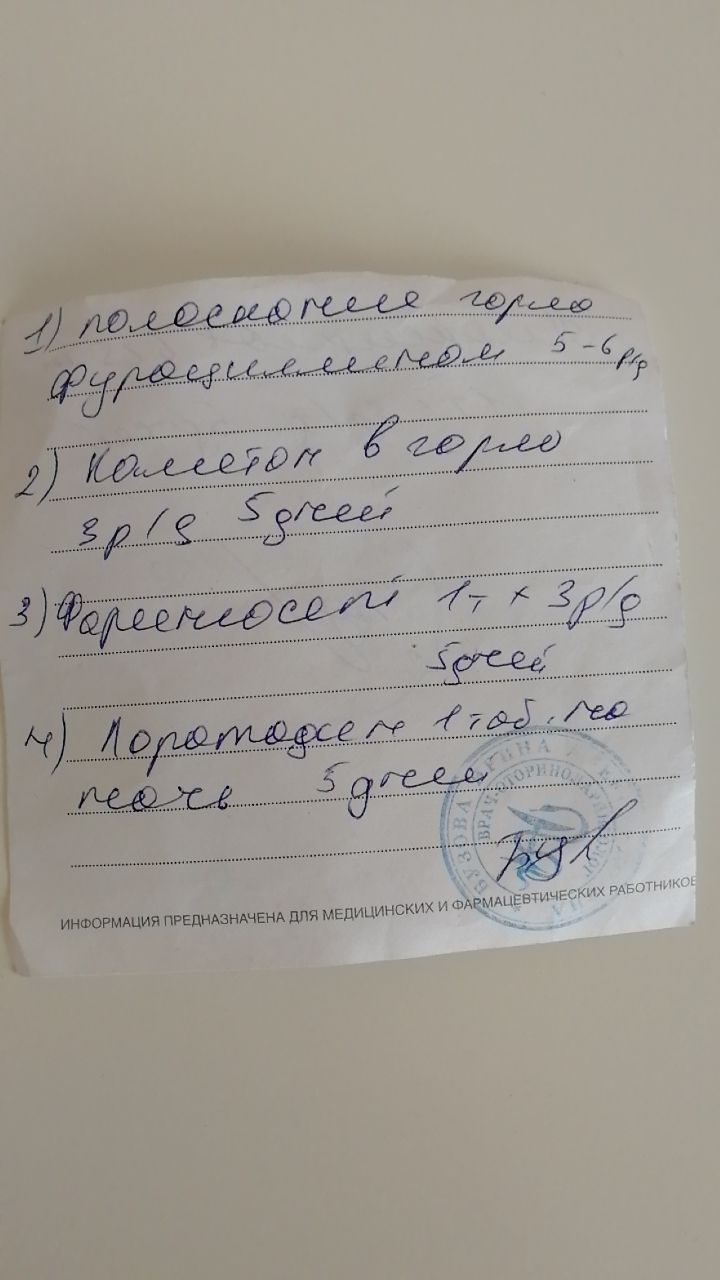 1) полоскание горла
фурациллином 5-6 р/д
2) Каметон в горло
3 р/д 5 дней
3) Фарингосепт 1т x 3р/д
5 дней
4) Лоратадин 1 таб. на
ночь 5 дней
БУЗОВА АРИНА
ВРАЧ ОТОРИНОЛАРИНГОЛОГ
ИНФОРМАЦИЯ ПРЕДНАЗНАЧЕНА ДЛЯ МЕДИЦИНСКИХ И ФАРМАЦЕВТИЧЕСКИХ РАБОТНИКОВ